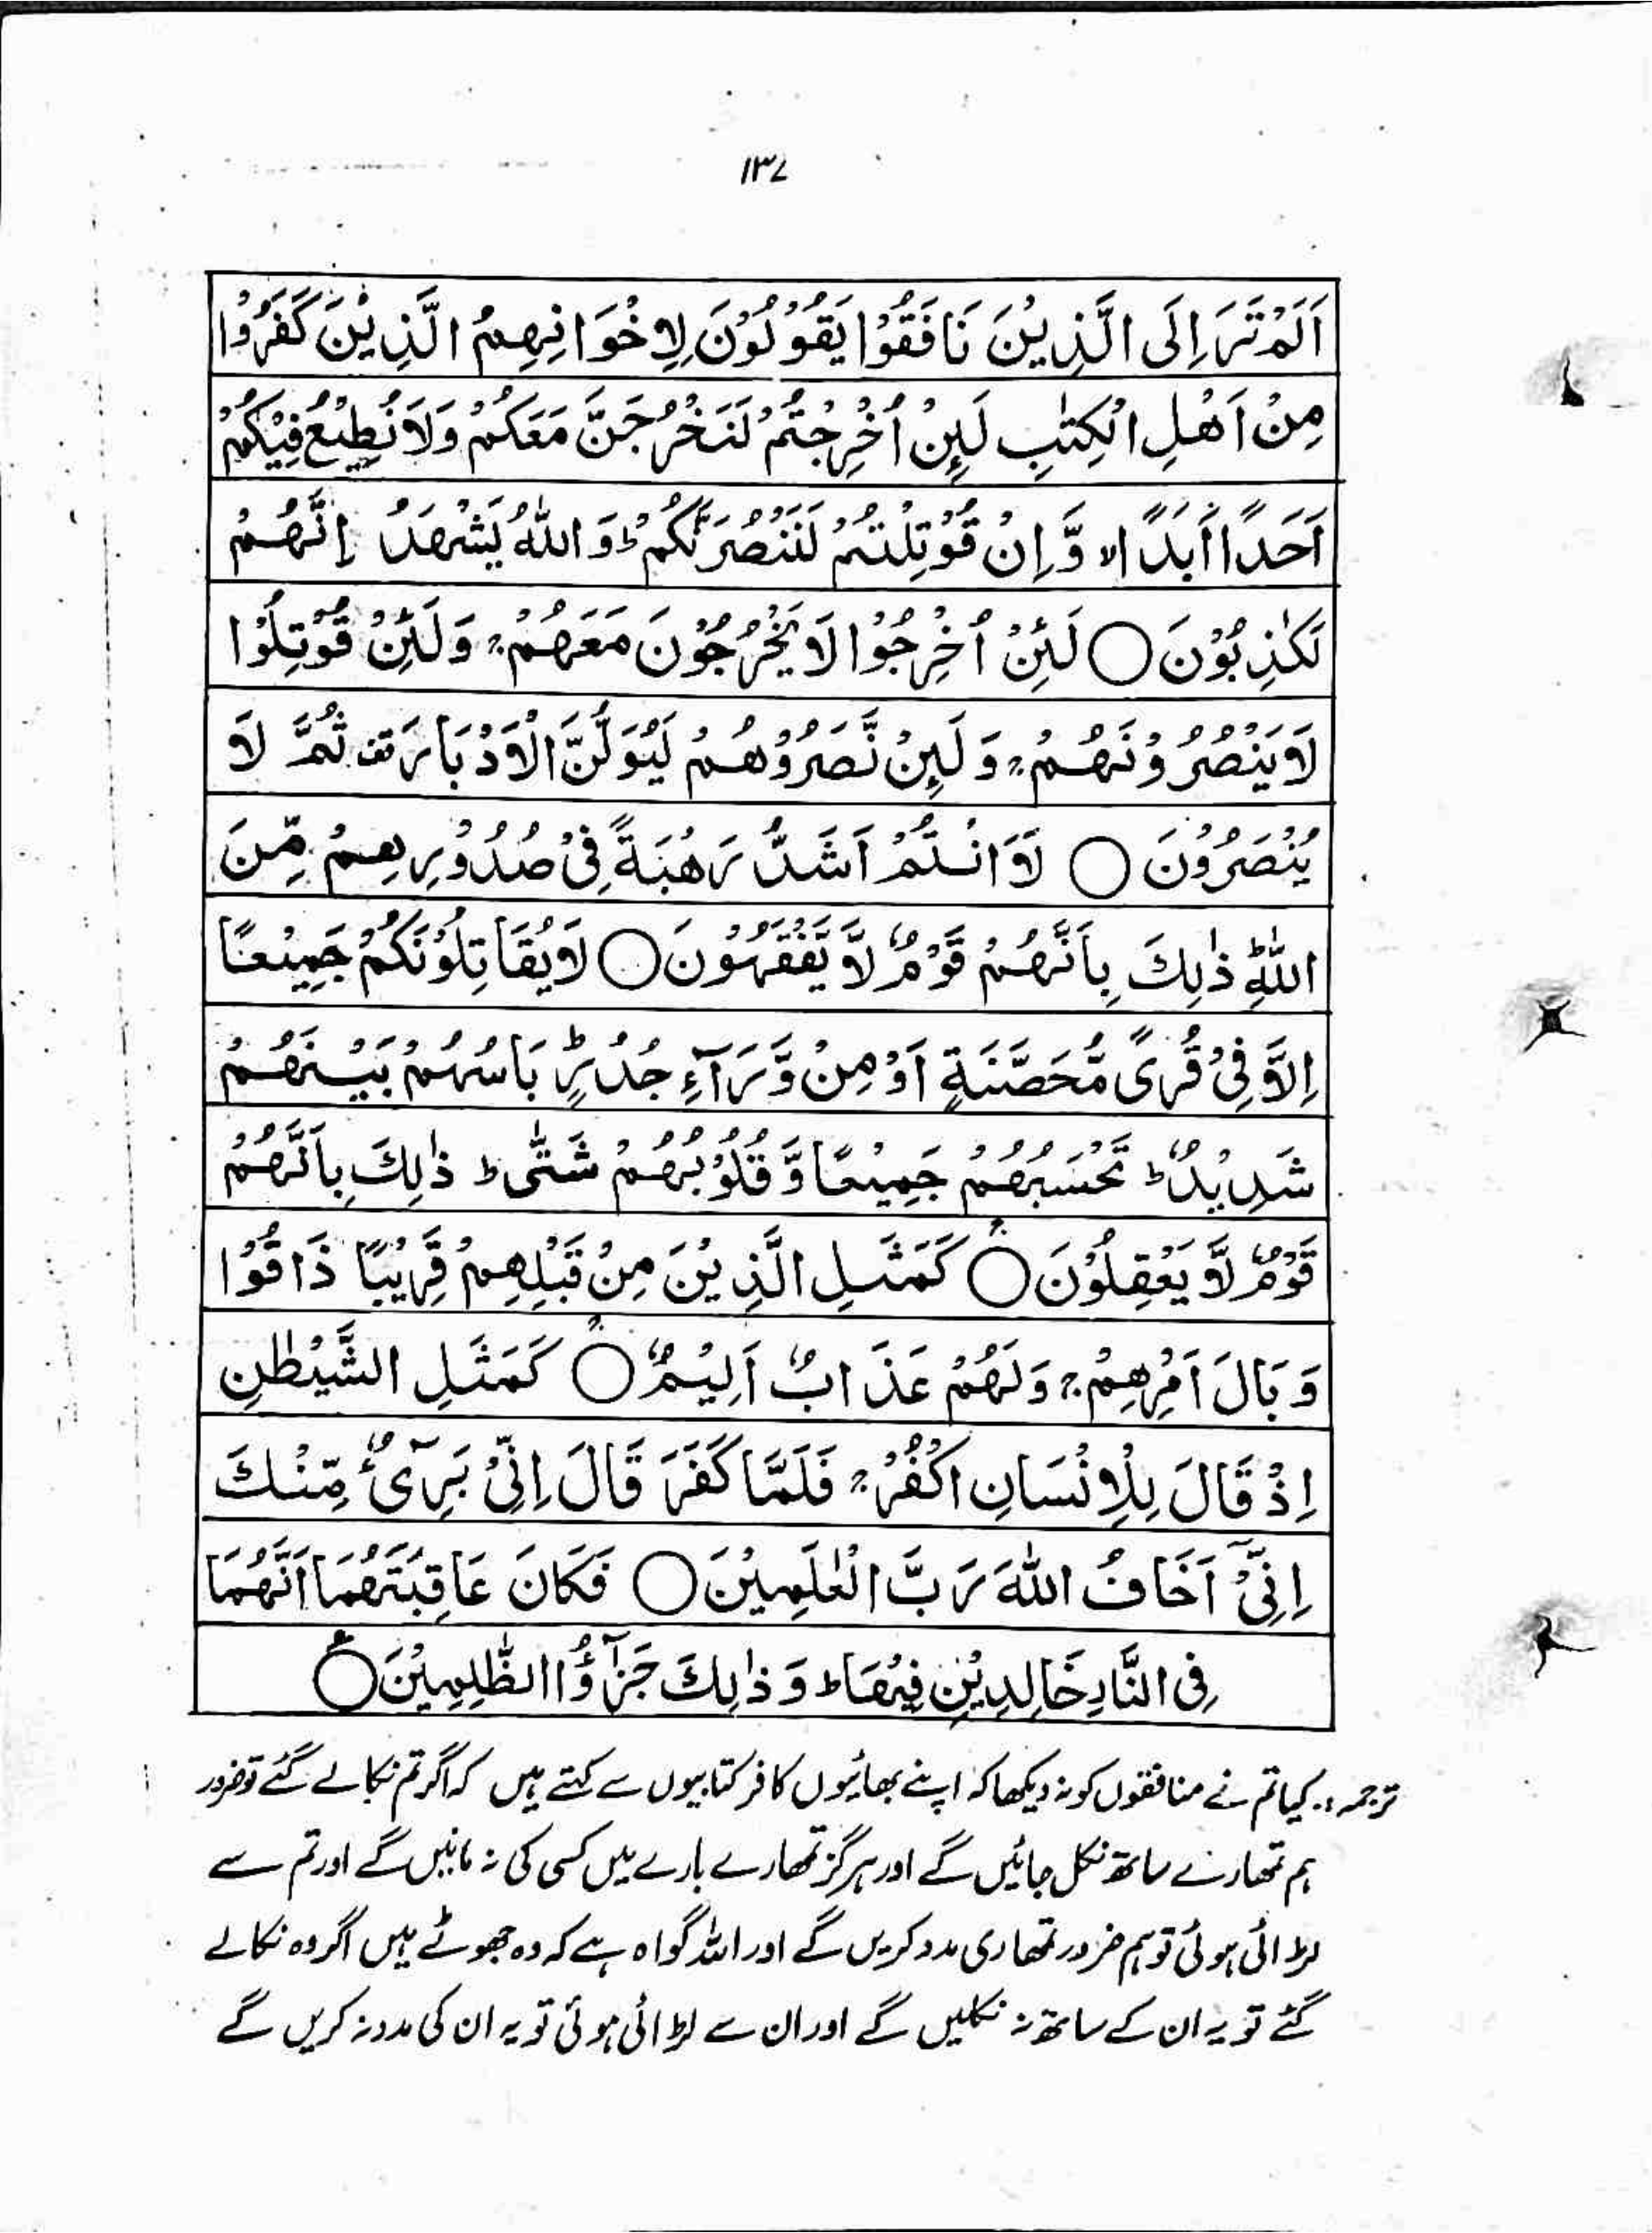 ۱۳۷
اَلَمْ تَرَ اِلَى الَّذِيْنَ نَافَقُوْا يَقُوْلُوْنَ لِاِخْوَانِهِمُ الَّذِيْنَ كَفَرُوْا
مِنْ اَهْلِ الْكِتٰبِ لَئِنْ اُخْرِجْتُمْ لَنَخْرُجَنَّ مَعَكُمْ وَلَا نُطِيْعُ فِيْكُمْ
اَحَدًا اَبَدًا ۙ وَّاِنْ قُوْتِلْتُمْ لَنَنْصُرَنَّكُمْ ؕ وَاللّٰهُ يَشْهَدُ اِنَّهُمْ
لَكٰذِبُوْنَ ○ لَئِنْ اُخْرِجُوْا لَا يَخْرُجُوْنَ مَعَهُمْ ۚ وَلَئِنْ قُوْتِلُوْا
لَا يَنْصُرُوْنَهُمْ ۚ وَلَئِنْ نَّصَرُوْهُمْ لَيُوَلُّنَّ الْاَدْبَارَ ۟ ثُمَّ لَا
يُنْصَرُوْنَ ○ لَاَ انْتُمْ اَشَدُّ رَهْبَةً فِىْ صُدُوْرِهِمْ مِّنَ
اللّٰهِ ؕ ذٰلِكَ بِاَنَّهُمْ قَوْمٌ لَّا يَفْقَهُوْنَ ○ لَا يُقَاتِلُوْنَكُمْ جَمِيْعًا
اِلَّا فِىْ قُرًى مُّحَصَّنَةٍ اَوْ مِنْ وَّرَآءِ جُدُرٍ ؕ بَاْسُهُمْ بَيْنَهُمْ
شَدِيْدٌ ؕ تَحْسَبُهُمْ جَمِيْعًا وَّقُلُوْبُهُمْ شَتّٰى ؕ ذٰلِكَ بِاَنَّهُمْ
قَوْمٌ لَّا يَعْقِلُوْنَ ○ كَمَثَلِ الَّذِيْنَ مِنْ قَبْلِهِمْ قَرِيْبًا ذَاقُوْا
وَبَالَ اَمْرِهِمْ ۚ وَلَهُمْ عَذَابٌ اَلِيْمٌ ○ كَمَثَلِ الشَّيْطٰنِ
اِذْ قَالَ لِلْاِنْسَانِ اكْفُرْ ۚ فَلَمَّا كَفَرَ قَالَ اِنِّىْ بَرِىْٓءٌ مِّنْكَ
اِنِّىْٓ اَخَافُ اللّٰهَ رَبَّ الْعٰلَمِيْنَ ○ فَكَانَ عَاقِبَتَهُمَا اَنَّهُمَا
فِى النَّارِ خَالِدِيْنِ فِيْهَا ؕ وَذٰلِكَ جَزٰٓؤُا الظّٰلِمِيْنَ ○ ع
ترجمہ:۔ کیا تم نے منافقوں کو نہ دیکھا کہ اپنے بھائیوں کافر کتابیوں سے کہتے ہیں کہ اگر تم نکالے گئے تو ضرور
ہم تمھارے ساتھ نکل جائیں گے اور ہرگز تمھارے بارے میں کسی کی نہ مانیں گے اور تم سے
لڑائی ہوئی تو ہم ضرور تمھاری مدد کریں گے اور اللہ گواہ ہے کہ وہ جھوٹے ہیں اگر وہ نکالے
گئے تو یہ ان کے ساتھ نہ نکلیں گے اور ان سے لڑائی ہوئی تو یہ ان کی مدد نہ کریں گے